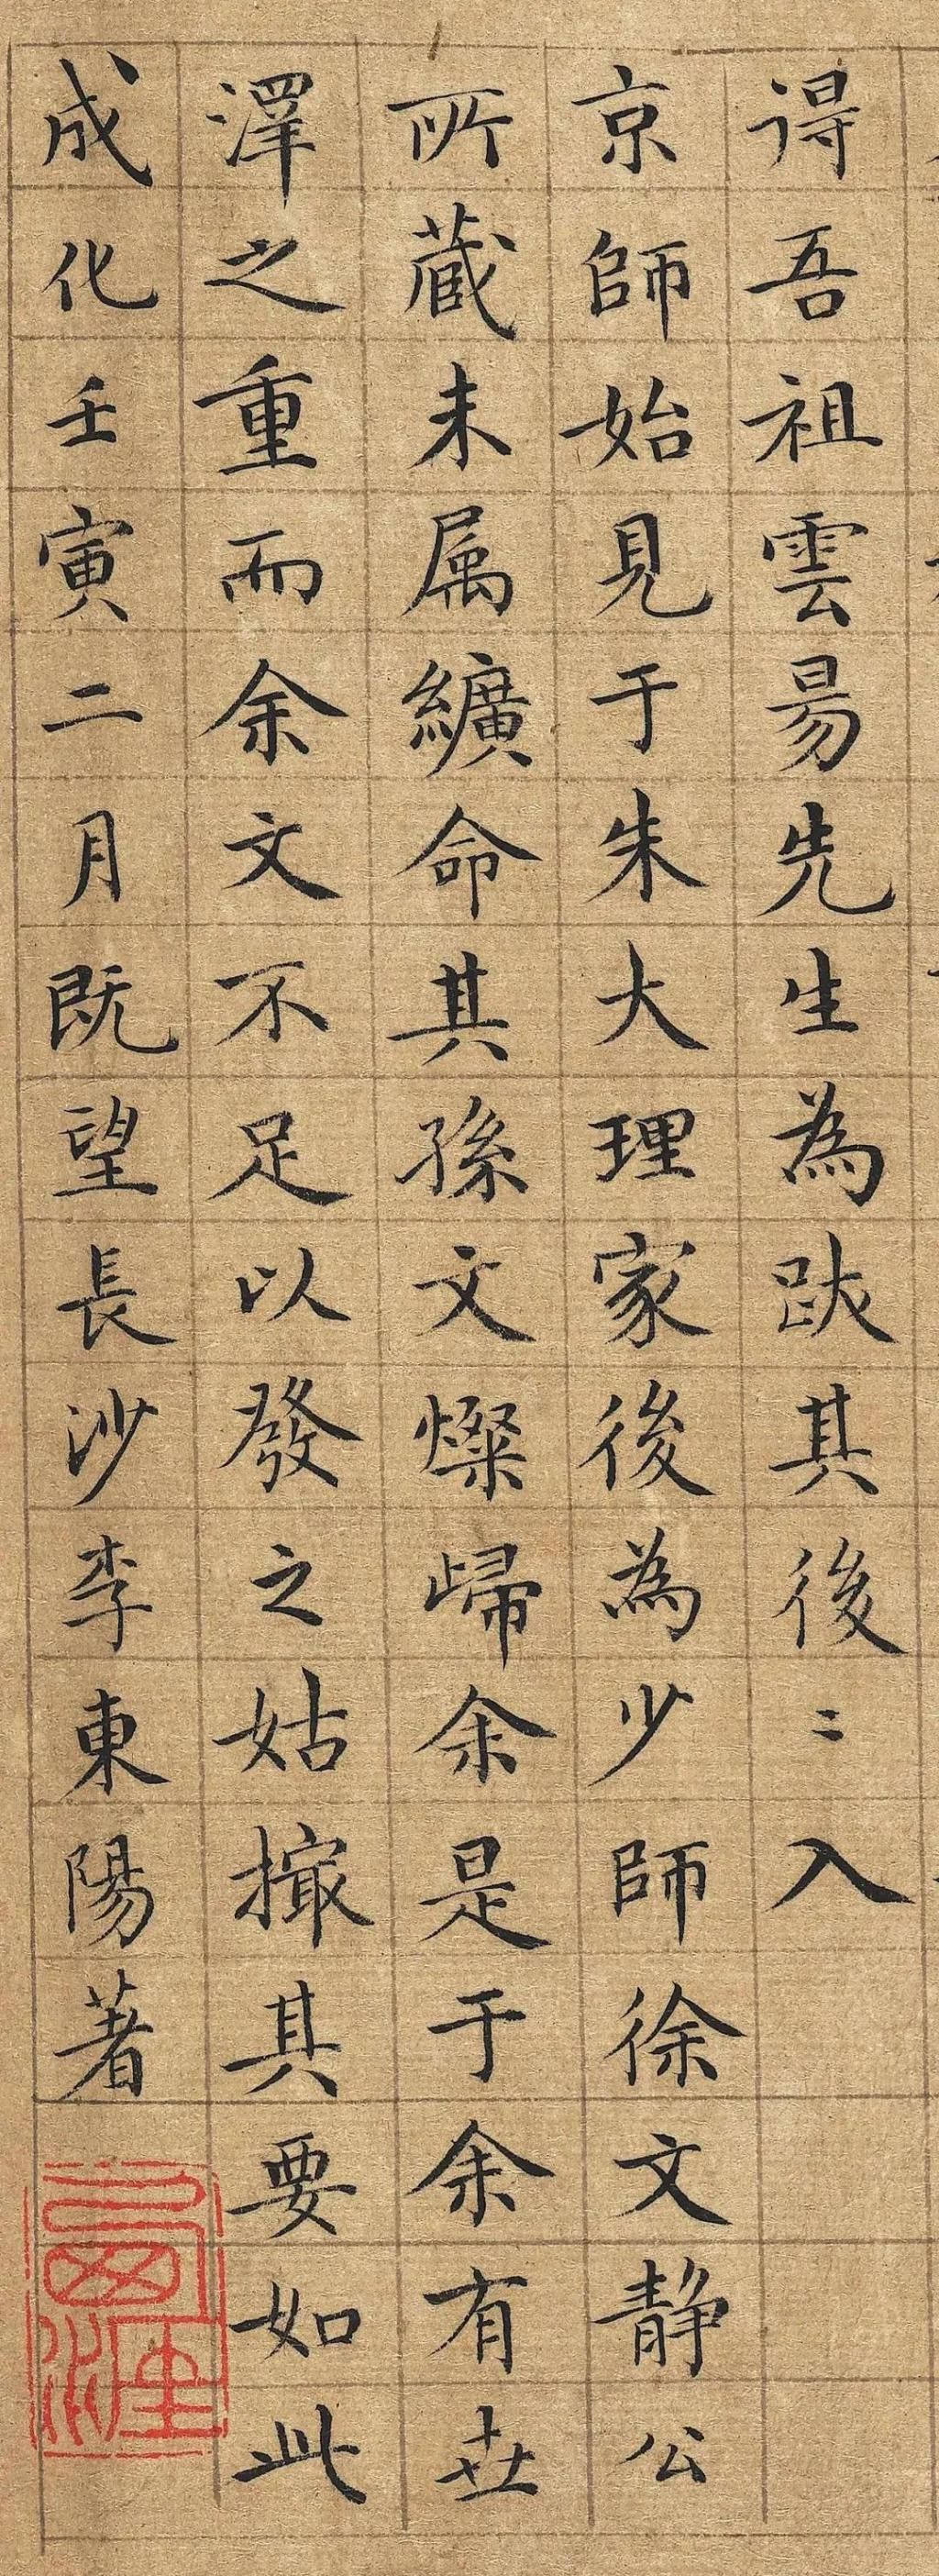 得吾祖雲昜先生為跋其後〻入
京師始見于朱大理家後為少師徐文静公
所藏未属纊命其孫文燦歸余是于余有世
澤之重而余文不足以發之姑撮其要如此
成化壬寅二月既望長沙李東陽著
西涯